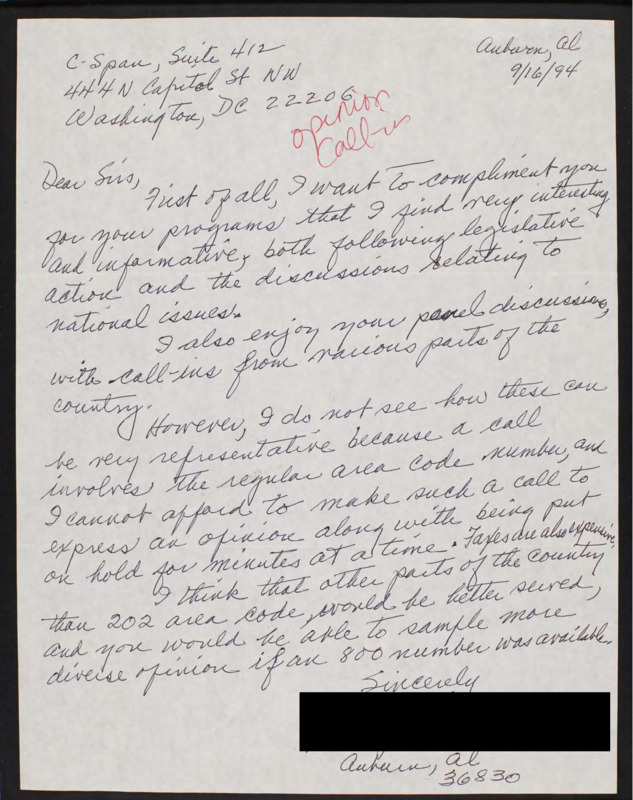 C-Span, Suite 412
444 N Capitol St NW
Washington, DC 22206
Auburn, Al
9/16/94
opinion
Call-in
Dear Sirs,
First of all, I want to compliment you
for your programs that I find very interesting
and informative, both following legislative
action and the discussions relating to
national issues.
I also enjoy your panel discussions,
with call-ins from various parts of the
country.
However, I do not see how these can
be very representative because a call
involves the regular area code number, and
I cannot afford to make such a call to
express an opinion along with being put
on hold for minutes at a time. Faxes are also expensive.
I think that other parts of the country
than 202 area code, would be better served,
and you would be able to sample more
diverse opinion if an 800 number was available.
Sincerely
Auburn, Al
36830